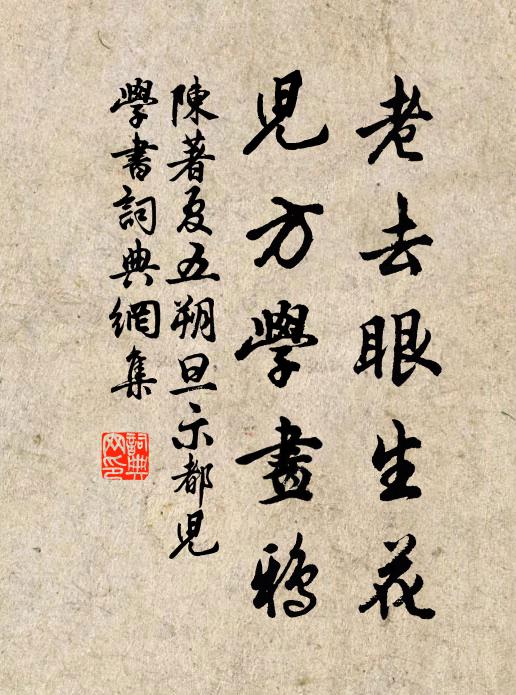 老去眼生花
兒方學畫鴉
陳著夏五朔旦示都兒
學書詞典網集
詞典网印